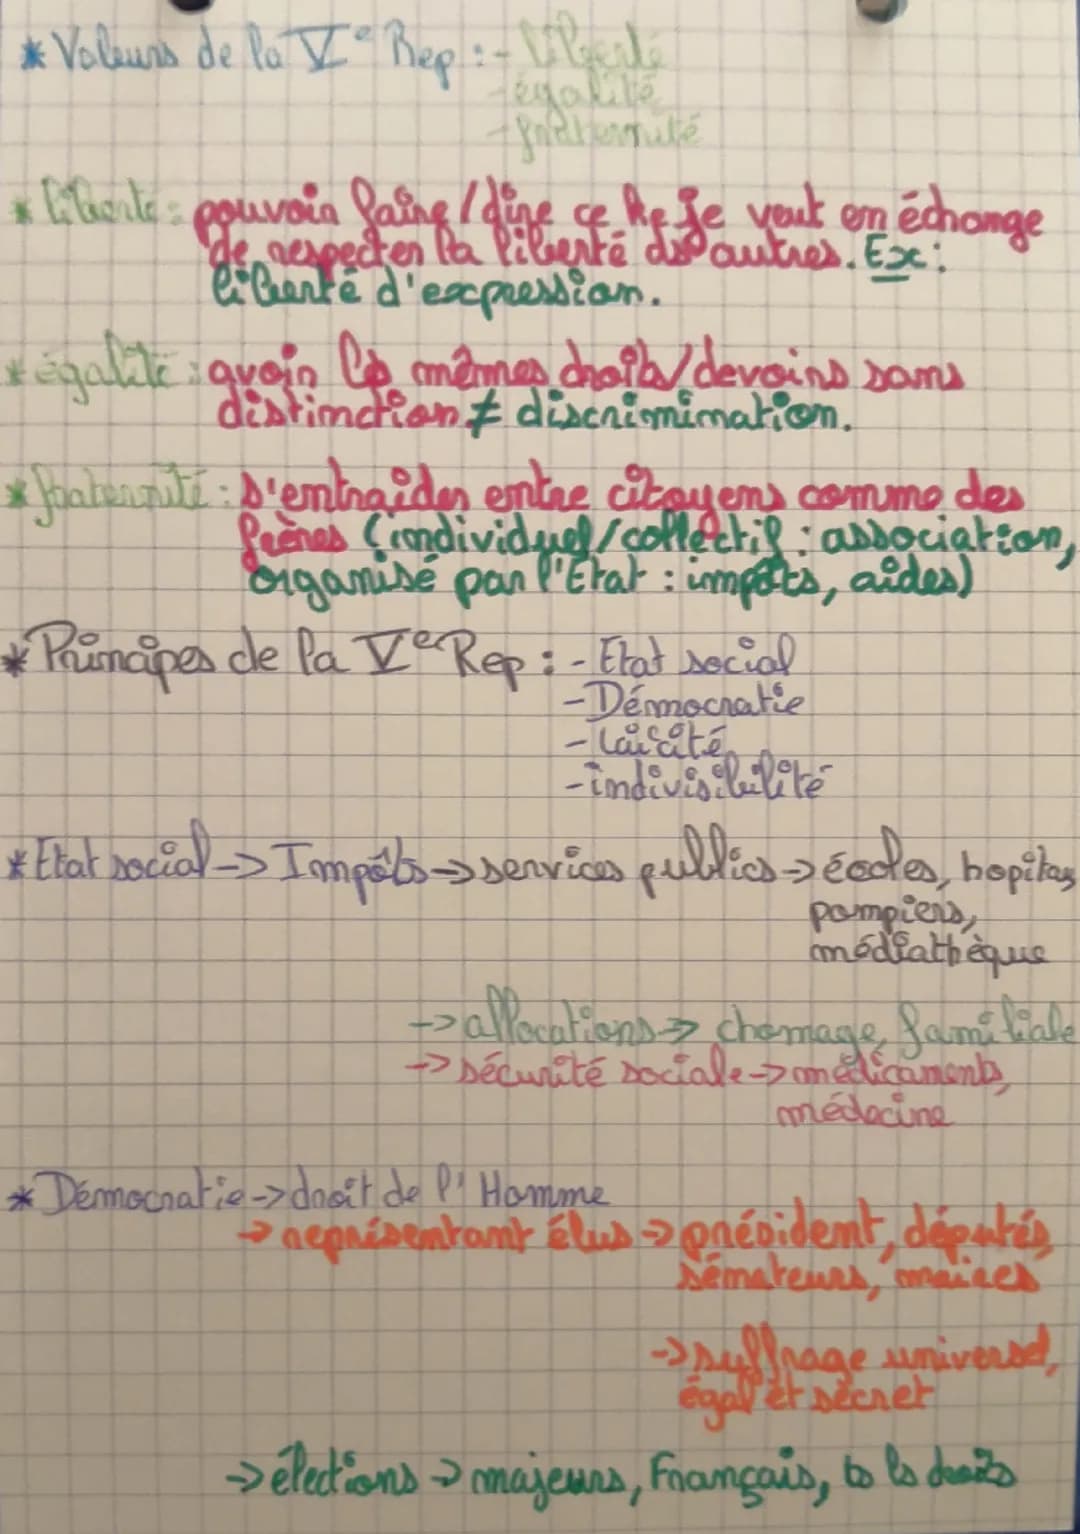 * Valeurs de la Vᵉ Rep : - liberté
- égalité
- fraternité
* liberté : pouvoir faire/dire ce ke je veut en échange
de respecter la liberté ds autres. Ex :
liberté d'expression.
* égalité : avoir les mêmes droits/devoirs sans
distinction ≠ discrimination.
* fraternité : s'entraider entre citoyens comme des
frères (individuel/collectif : association,
organisé par l'Etat : impôts, aides)
* Principes de la Vᵉ Rep : - Etat social
- Démocratie
- laïcité
- indivisibilité
* Etat social -> Impôts -> services publics -> écoles, hopitax
pompiers,
médiathèque
-> allocations -> chomage, familiale
-> sécurité sociale -> médicaments,
médecine
* Démocratie -> droit de l'Homme
-> représentant élus -> président, députés,
sénateurs, maires
-> suffrage universel,
égal et secret
-> élections -> majeurs, Français, ts ls droits